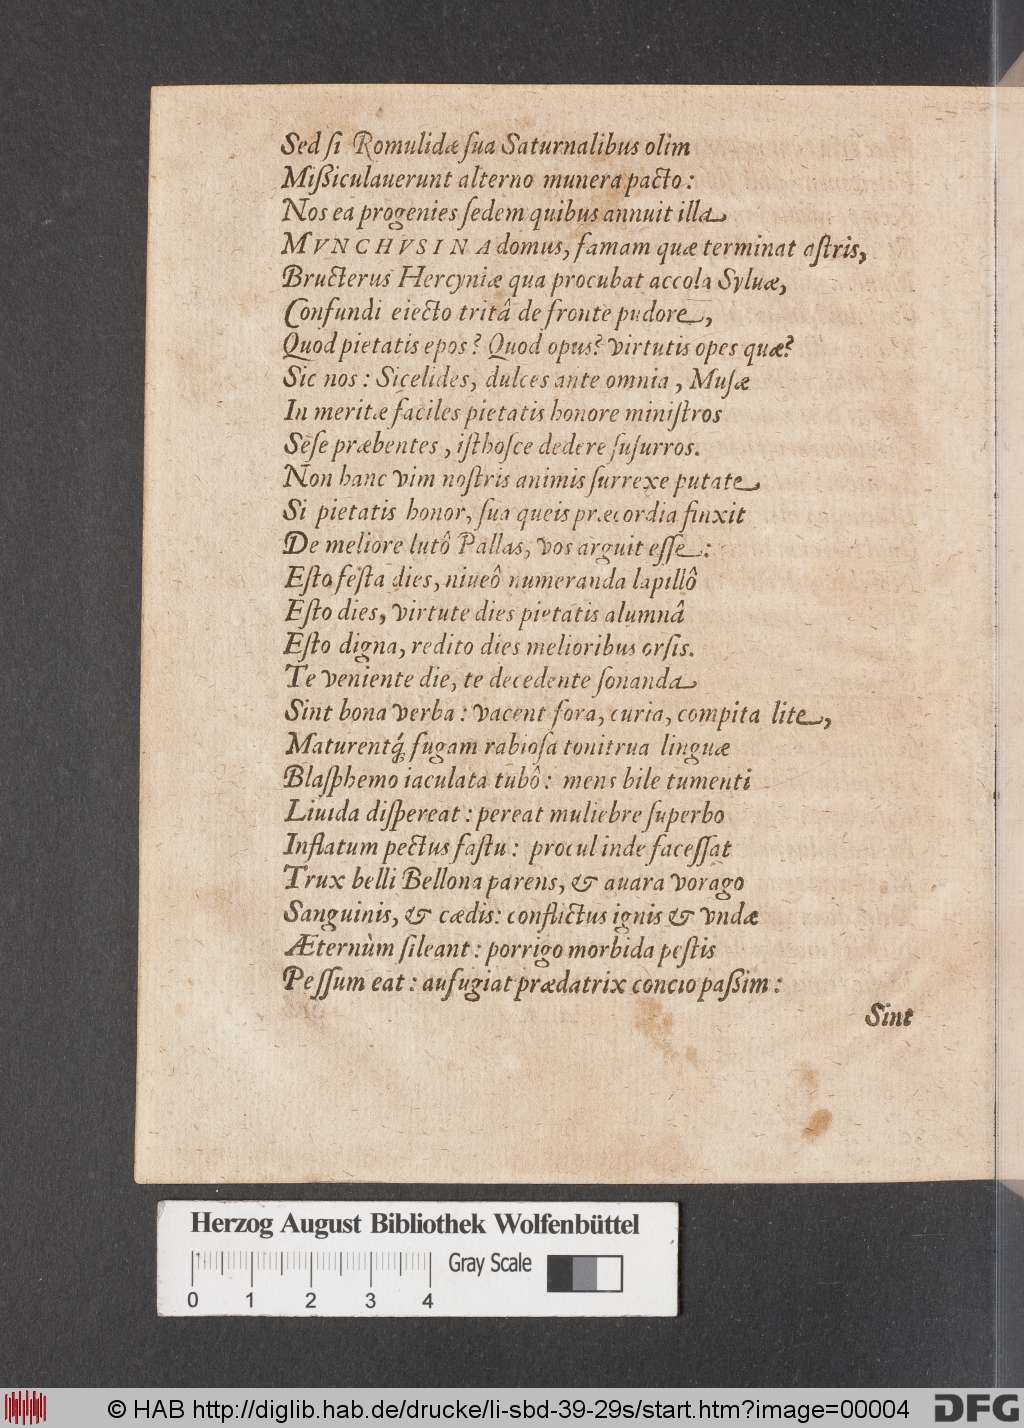 Sed ſi Romulidæ ſua Saturnalibus olim
Mißiculauerunt alterno munera pacto:
Nos ea progenies ſedem quibus annuit illa
MVNCHVSINA domus, famam quæ terminat aſtris,
Bructerus Hercyniæ qua procubat accola Syluæ,
Confundi eiecto tritâ de fronte pudore,
Quod pietatis epos? Quod opus? virtutis opes quæ?
Sic nos: Sicelides, dulces ante omnia, Muſæ
In meritæ faciles pietatis honore miniſtros
Seſe præbentes, iſthoſce dedere ſuſurros.
Non hanc vim noſtris animis ſurrexe putate
Si pietatis honor, ſua queis præcordia finxit
De meliore lutô Pallas, vos arguit eſſe:
Eſto feſta dies, niueô numeranda lapillô
Eſto dies, virtute dies pietatis alumnâ
Eſto digna, redito dies melioribus orſis.
Te veniente die, te decedente ſonanda
Sint bona verba: vacent fora, curia, compita lite,
Maturentq́ fugam rabioſa tonitrua linguæ
Blaſphemo iaculata tubô: mens bile tumenti
Liuida diſpereat: pereat muliebre ſuperbo
Inflatum pectus faſtu: procul inde faceſſat
Trux belli Bellona parens, & auara vorago
Sanguinis, & cædis: conflictus ignis & vndæ
Æternùm ſileant: porrigo morbida peſtis
Peſſum eat: aufugiat prædatrix concio paßim:
Sint
Herzog August Bibliothek Wolfenbüttel
Gray Scale
0 1 2 3 4
© HAB http://diglib.hab.de/drucke/li-sbd-39-29s/start.htm?image=00004
DFG